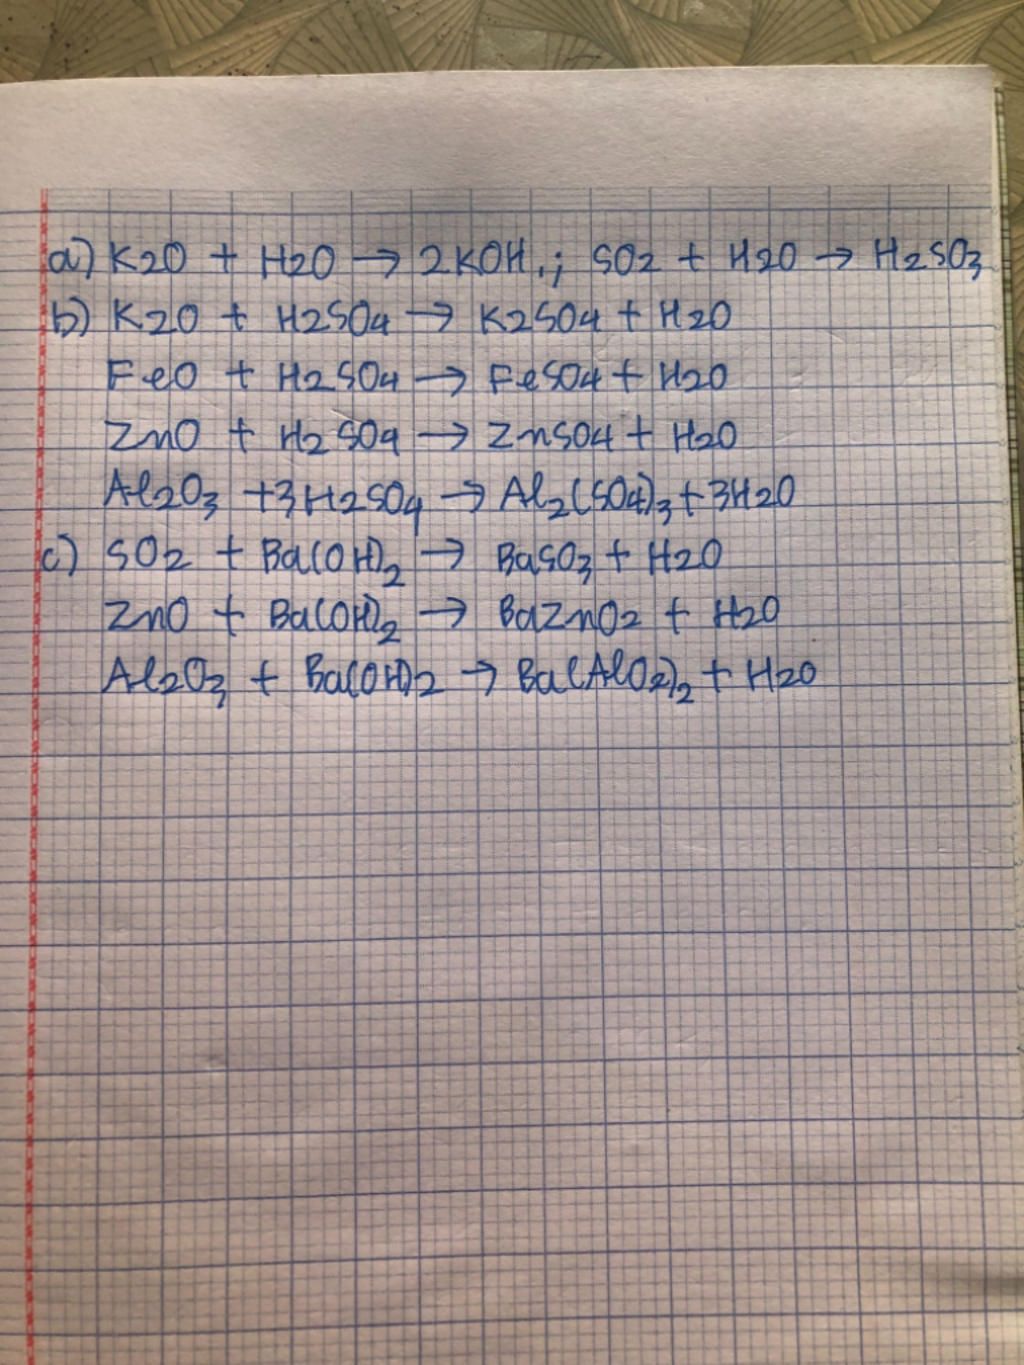 a) K2O + H2O → 2KOH.; SO2 + H2O → H2SO3
b) K2O + H2SO4 → K2SO4 + H2O
FeO + H2SO4 → FeSO4 + H2O
ZnO + H2SO4 → ZnSO4 + H2O
Al2O3 +3H2SO4 → Al2(SO4)3+3H2O
c) SO2 + Ba(OH)2 → BaSO3 + H2O
ZnO + Ba(OH)2 → BaZnO2 + H2O
Al2O3 + Ba(OH)2 → Ba(AlO2)2 + H2O